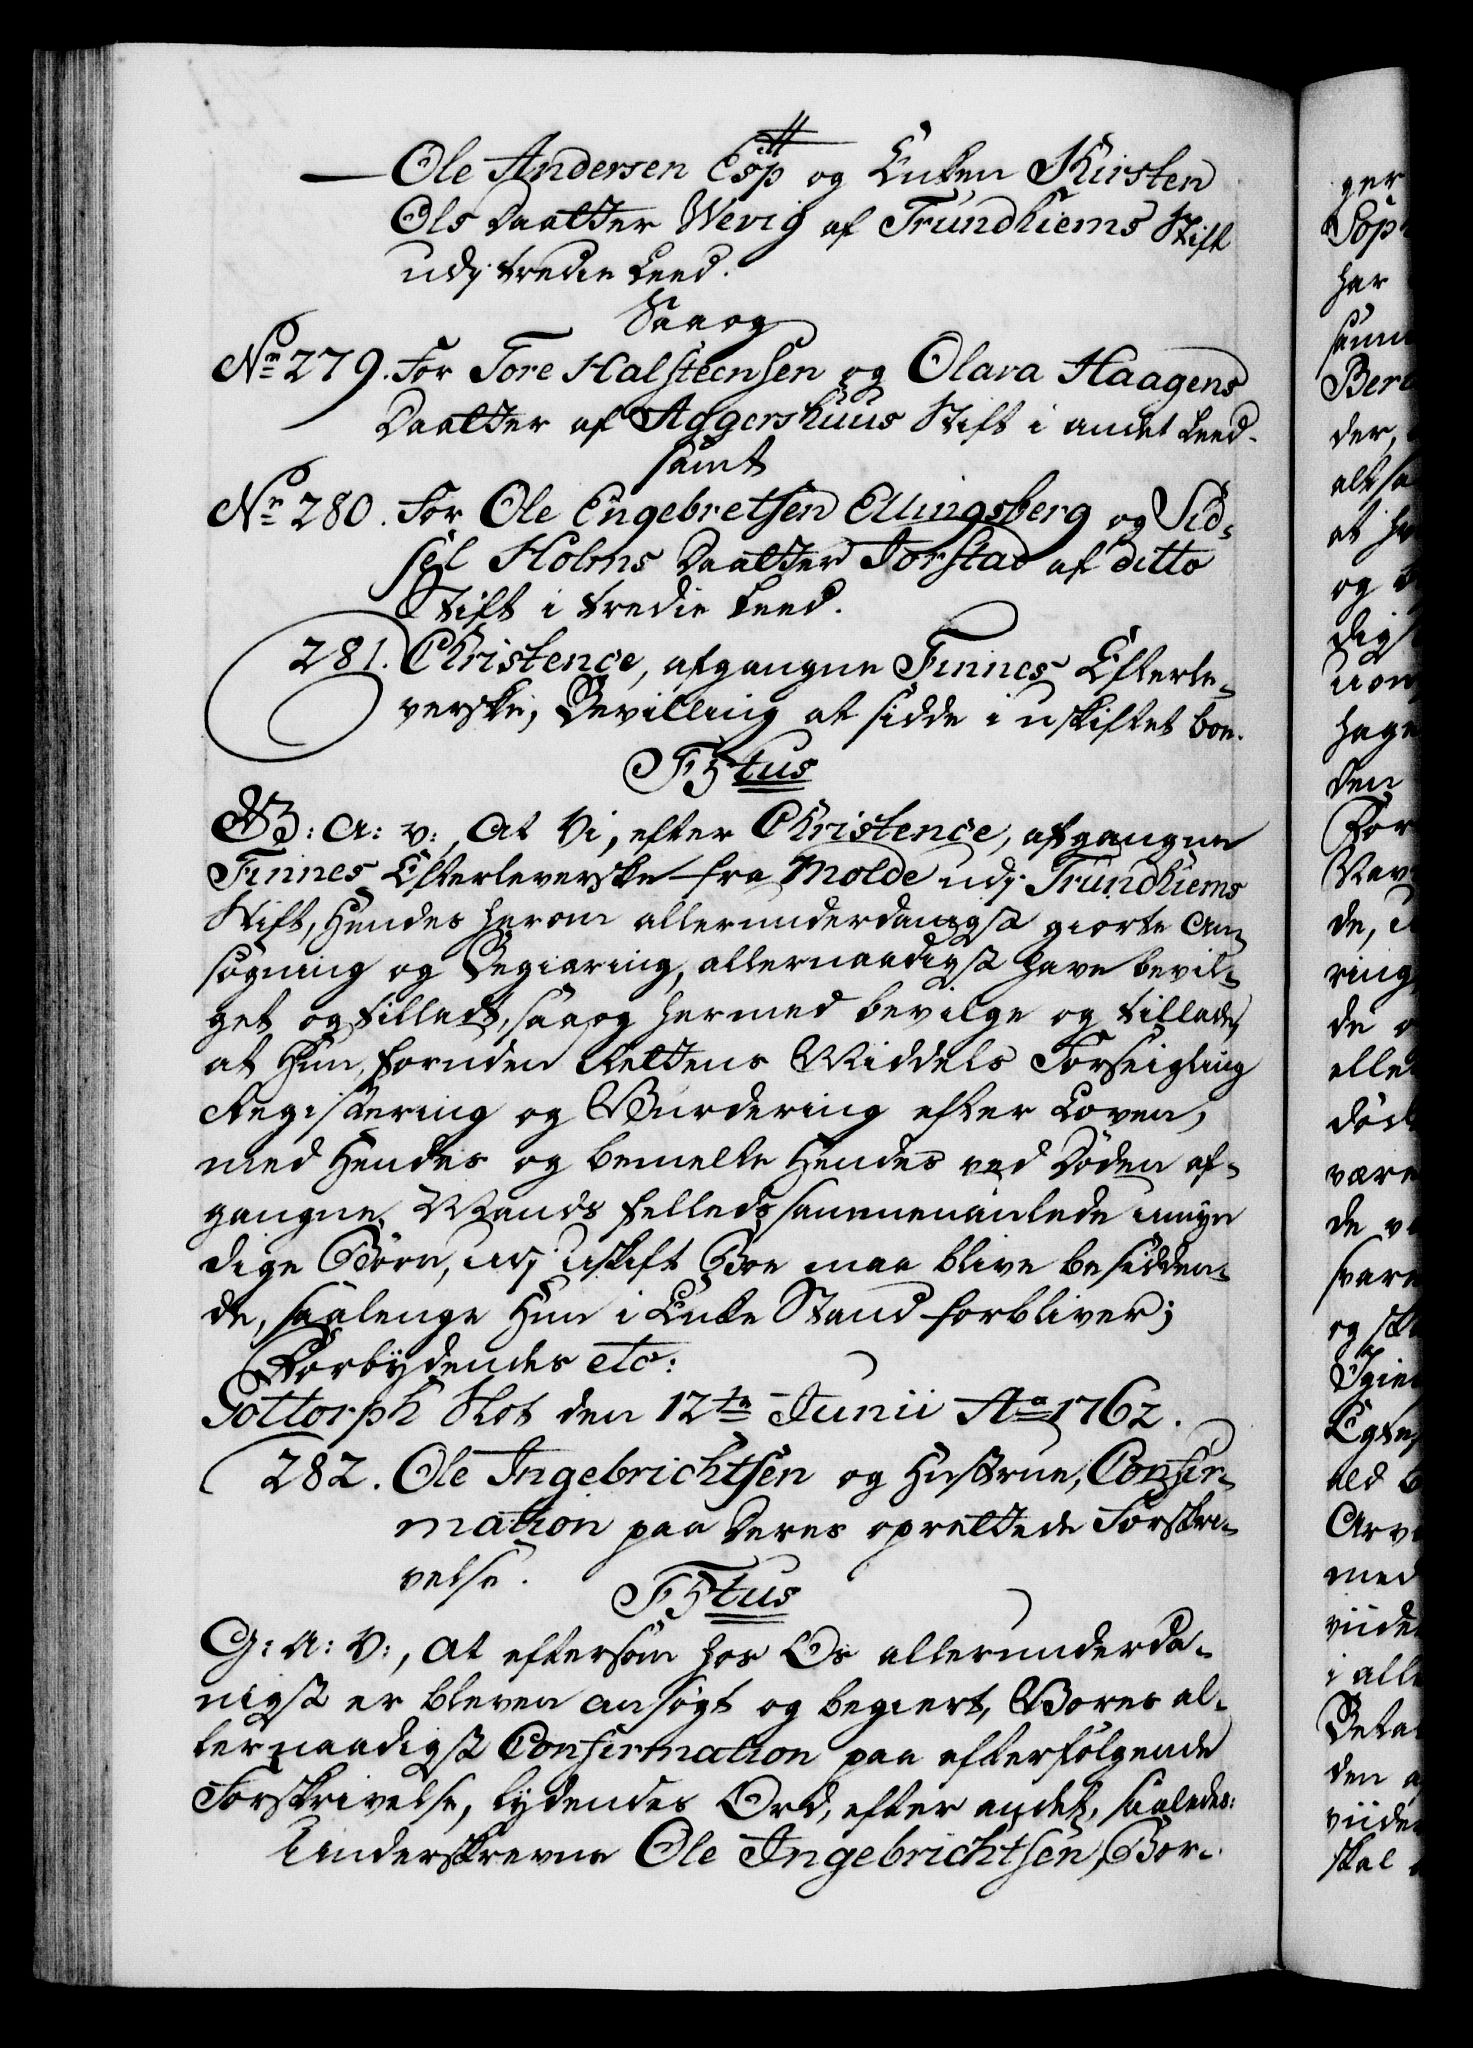 — Ole Andersen Esp og Enken Kirsten
Ols Daatter Wevig af Trundhiems Stift
udj tredie Leed.
Saa og
No 279. For Tore Halsteensen og Olava Haagens
Daatter af Aggershuus Stift i andet Leed.
samt
No 280. For Ole Engebretsen Ellingsberg og Sid-
sel Holms Daatter Jorstad af ditto
Stift i tredie Leed.
281. Christence, afgangne Finnes Efterle-
verske, Bevilling at sidde i uskiftet boe.
F5tus
G: A: V:, At Vi, efter Christence, afgangne
Finnes Efterleverske fra Molde udj Trundhiems
Stift, Hendes herom allerunderdanigst giorte An-
søgning og Begiæring, allernaadigst have bevil-
get og tilladt, saa og hermed bevilge og tillade,
at Hun, foruden Rettens Middels Forseigling
Registering og Vurdering efter Loven,
med Hendes og bemelte Hendes ved Døden af-
gangne Mands fælleds sammenavlede umyn
dige Børn, udj uskift Boe maa blive besidden-
de, saalenge Hun i Enke Stand forbliver;
Forbydendes etc:
Gottorph Slot den 12te Junii Ao 1762.
282. Ole Ingebrichtsen og Hustrue, Confir-
mation paa Deres oprettede Forskri-
velse.
F5tus
G: A: V:, At eftersom hos Os allerunderda-
nigst er bleven ansøgt og begiert, Vores al-
lernaadigst Confirmation paa efterfølgende
Forskrivelse, lydendes Ord, efter andet, saaledes:
Underskrevne Ole Ingebrichtsen, Bor-